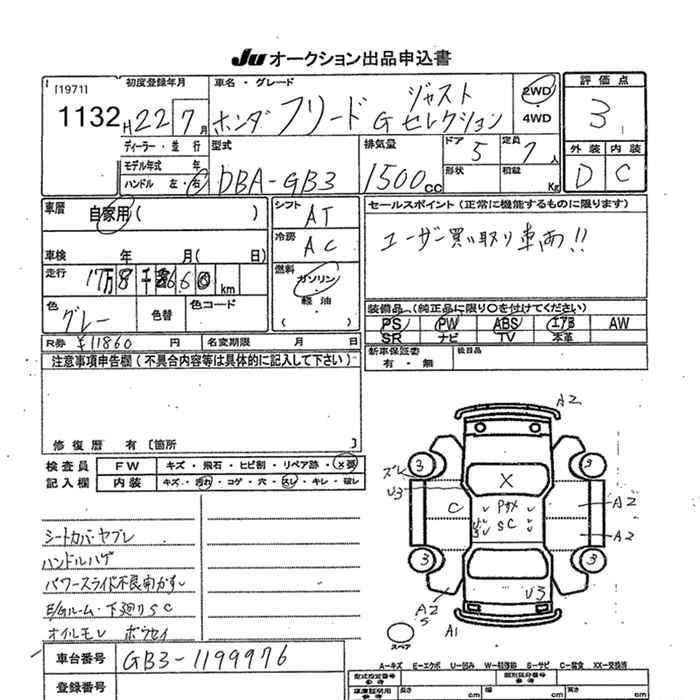 Ju オークション出品申込書
[1971]
1132
初度登録年月
H22 7月
車名・グレード
ホンダ フリード G ジャストセレクション
2WD・4WD
評価点
3
外装 内装
D C
ディーラー・並行
モデル年式 年
ハンドル 左・右
型式
DBA-GB3
排気量
1500cc
ドア 5
定員 7人
形状
積載 Kg
車歴
自家用( )
車検 年 月( 日)
走行
km
色
グレー
色替
色コード
シフト
AT
冷房
AC
燃料
ガソリン
軽油
( )
セールスポイント(正常に機能するものに限ります)
ユーザー買い取り車両!!
装備品(純正品に限り○を付けてください)
PS PW ABS エアB AW
SR ナビ TV 本革
R券 ¥11860 円
名変期限 月 日
新車保証書
有・無
後日品
注意事項申告欄(不具合内容等は具体的に記入して下さい)
修復歴 有〔箇所
検査員記入欄
FW キズ・飛石・ヒビ割・リペア跡・X要
内装 キズ・汚れ・コゲ・穴・スレ・キレ・破レ
シートカバーヤブレ
ハンドルハゲ
パワースライド不良向かず
E/Gルーム・下廻りSC
オイルモレ
A2
ズレ
3 3
U3
X
C
SC
A2
A2
3 3
U3
A2
S
A1
スペア
車台番号 GB3-1199976
登録番号
A―キズ E―エクボ U―凹み W―補修跡 S―サビ C―腐食 XX―交換済
型式指定番号
参考
類別区分番号
参考
車庫証明用
参考
長さ cm
幅 cm
高さ cm